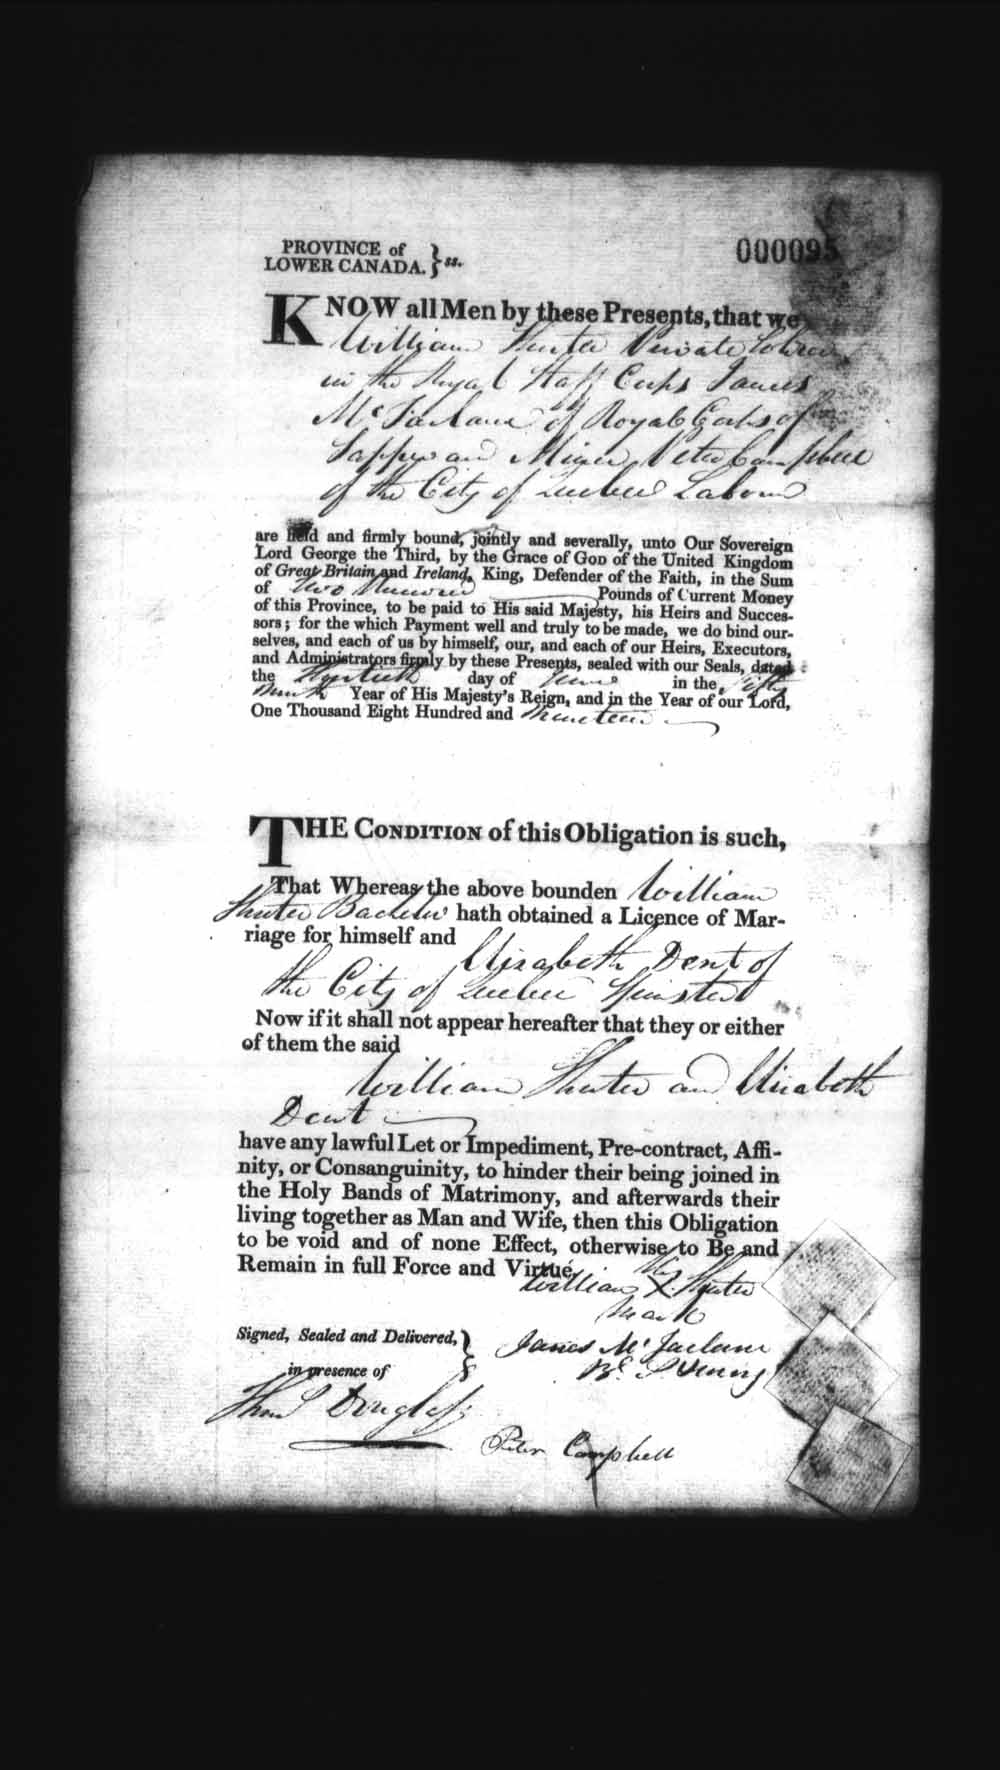 PROVINCE of
LOWER CANADA. } ss.
000095
KNOW all Men by these Presents, that we
William Hunter Private
in the Royal Staff Corps James
Mc Farlane of Royal Corps of
Sappers and Miners Peter Campbell
of the City of Quebec Laborer
are held and firmly bound, jointly and severally, unto Our Sovereign
Lord George the Third, by the Grace of GOD of the United Kingdom
of Great Britain and Ireland, King, Defender of the Faith, in the Sum
of two Hundred Pounds of Current Money
of this Province, to be paid to His said Majesty, his Heirs and Succes-
sors; for the which Payment well and truly to be made, we do bind our-
selves, and each of us by himself, our, and each of our Heirs, Executors,
and Administrators firmly by these Presents, sealed with our Seals, dated
the day of June in the Fifty
Ninth Year of His Majesty's Reign, and in the Year of our Lord,
One Thousand Eight Hundred and Nineteen
THE CONDITION of this Obligation is such,
That Whereas the above bounden William
Hunter Bachelor hath obtained a Licence of Mar-
riage for himself and
Elizabeth Dent of
the City of Quebec Spinster
Now if it shall not appear hereafter that they or either
of them the said
William Hunter and Elizabeth
Dent
have any lawful Let or Impediment, Pre-contract, Affi-
nity, or Consanguinity, to hinder their being joined in
the Holy Bands of Matrimony, and afterwards their
living together as Man and Wife, then this Obligation
to be void and of none Effect, otherwise to Be and
Remain in full Force and Virtue.
his
William X Hunter
mark
Signed, Sealed and Delivered, }
in presence of
James Mc Farlane
Thos Douglass
Peter Campbell